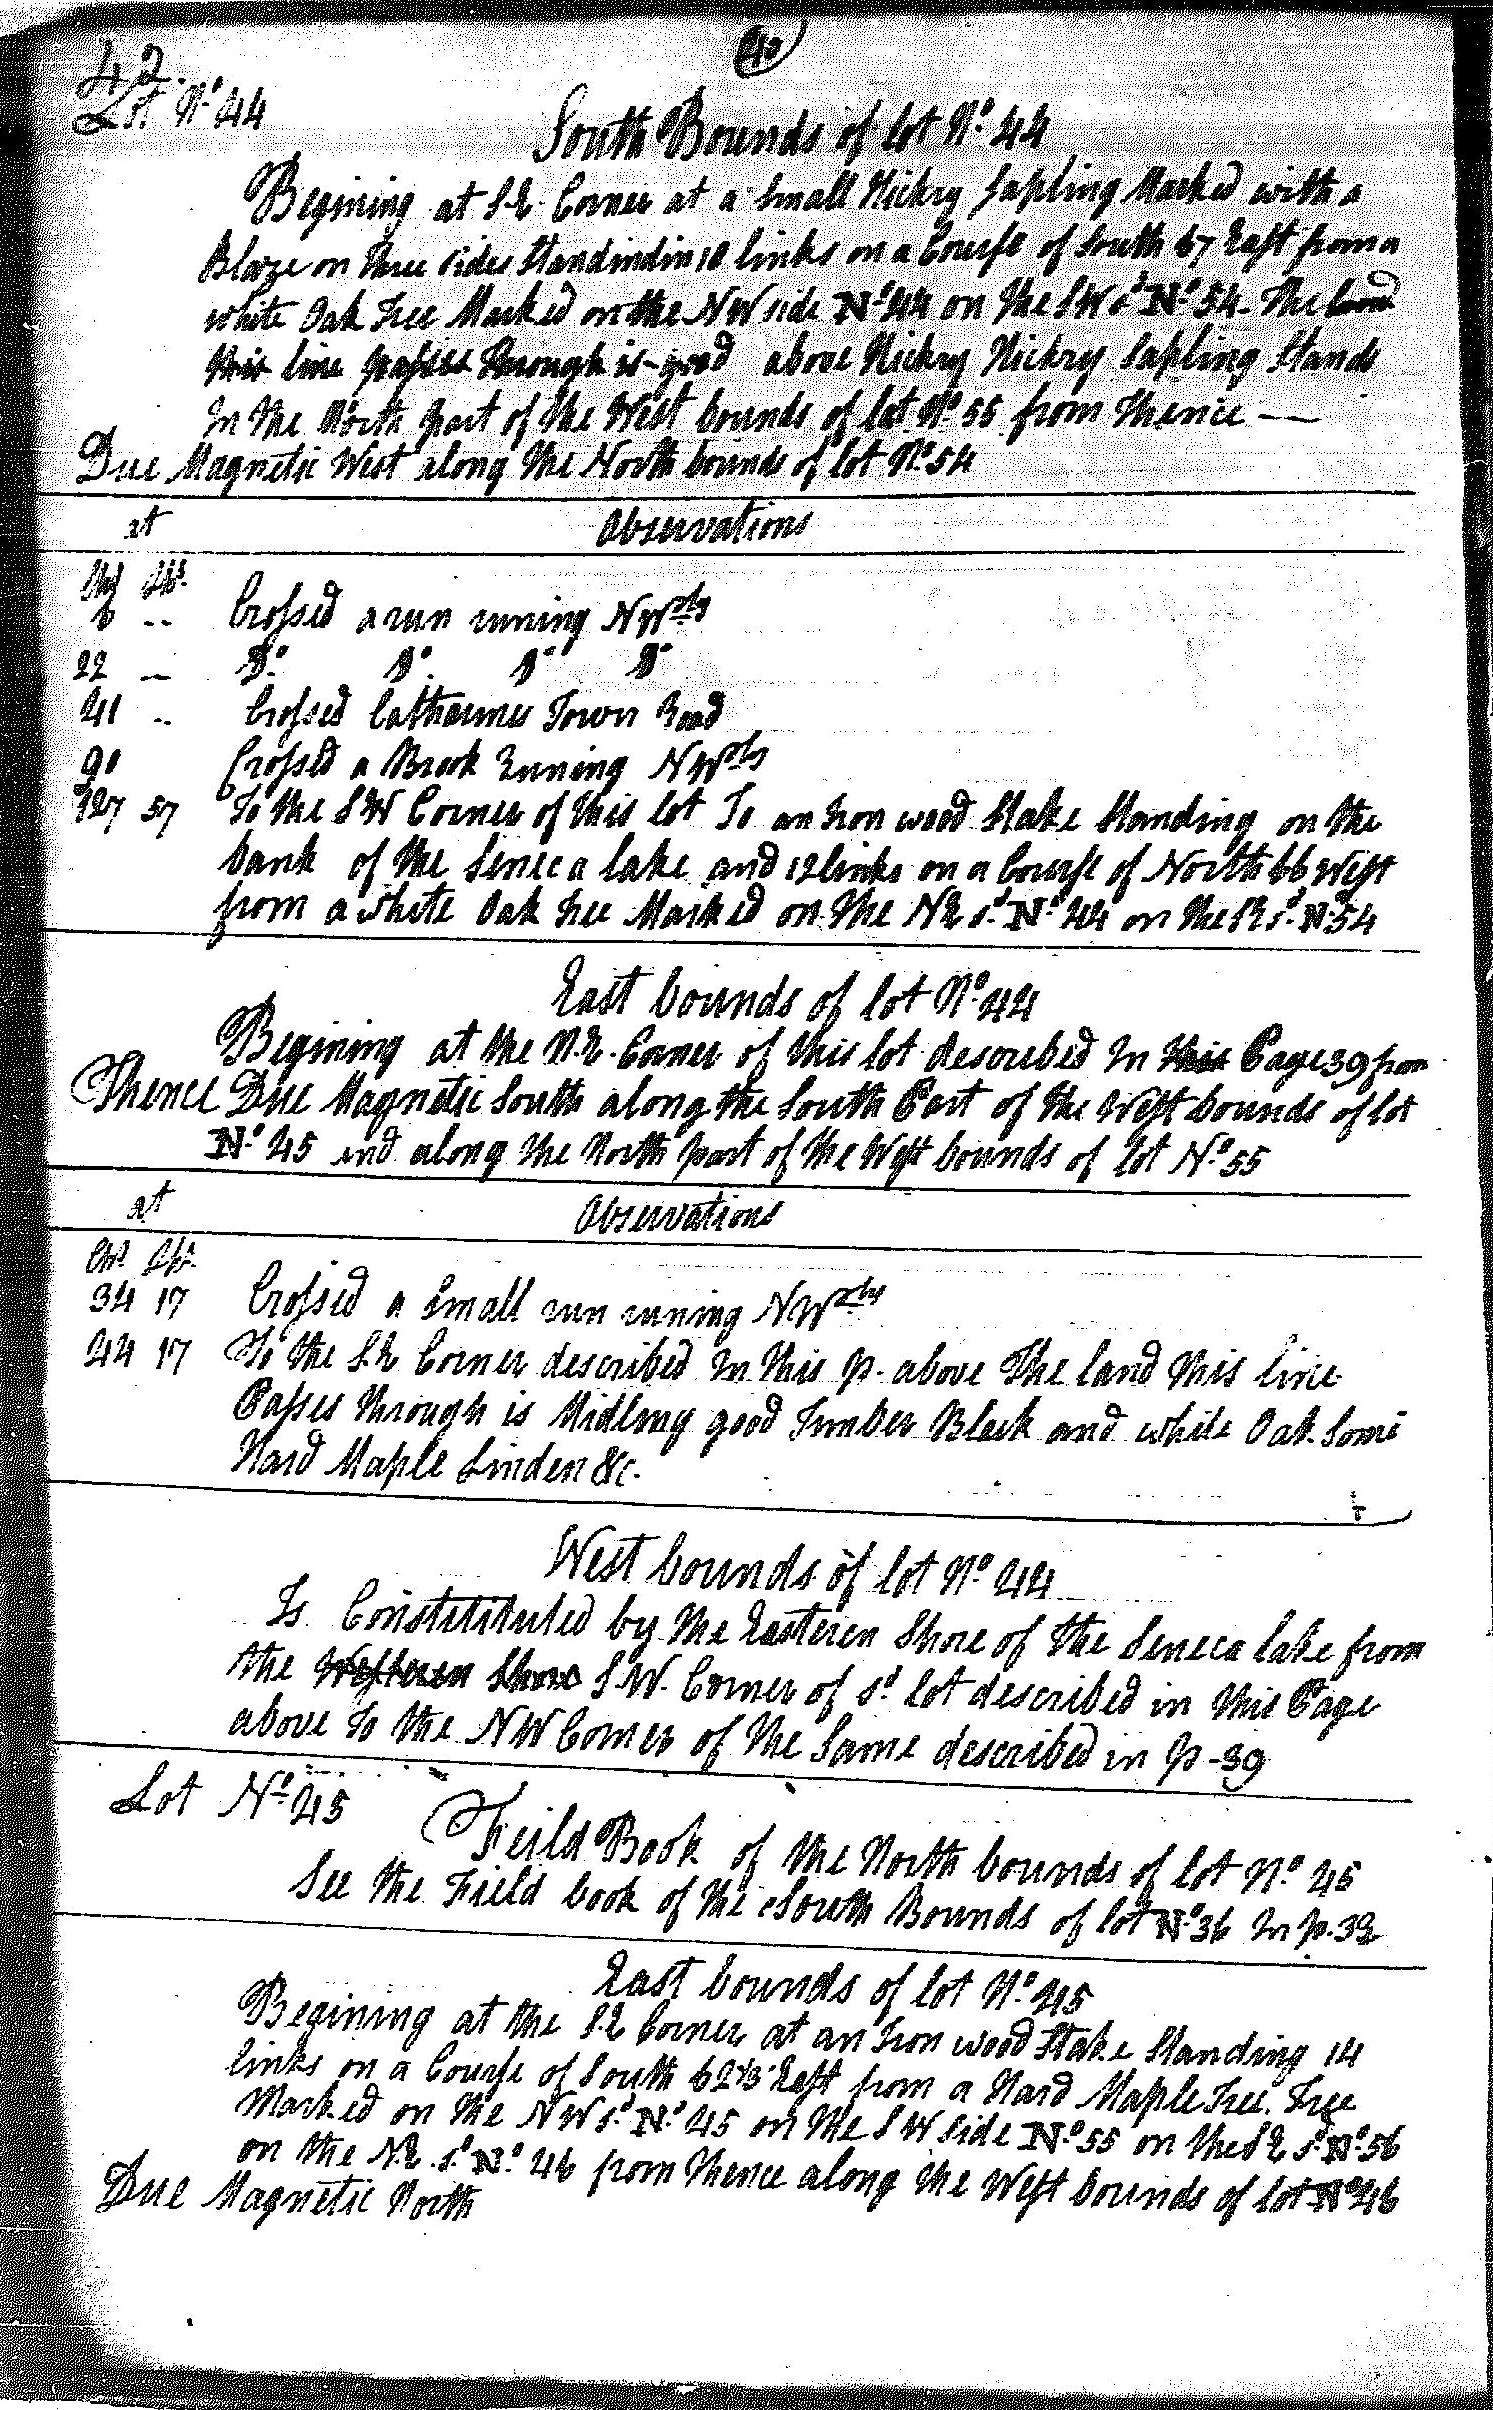 42.
42
Lot No 44
South Bounds of lot No. 44
Begining at S.E. Corner at a Small Hickry Sapling Marked with a
Blaze on three sides Standindin 10 links on a Course of South 67 East from a
white Oak Tree Marked on the NW side No 44 on the SW sd No 54. The
this line passes through is good above Hickry Hickry Sapling Stands
In the North part of the West bounds of lot No 55 from Thence —
Due Magnetic West along the North bounds of lot No. 54
at Observations
Chs Lks.
6 .. Crossed a run runing NWrly
22 .. Do. Do. Do Do
41 .. Crossed Catharines Town Road
90 Crossed a Brook Runing NWrly
127 57 To the SW Corner of this lot To an Iron wood Stake Standing on the
bank of the Seneca lake and 12 links on a Course of North 66 West
from a White Oak Tree Marked on the NE sd. No. 44 on the SE sd. No 54
East bounds of lot No. 44
Begining at the N.E. Corner of this lot described In this Page 39 from
Thence Due Magnetic South along the South Part of the West bounds of lot
No. 45 and along the North part of the West bounds of lot No. 55
at Observations
Chs Lks.
34 17 Crossed a Small run runing NWrly
44 17 To the S.E Corner described In this p. above The land this line
Passes through is Midling good Timber Black and white Oak Some
Hard Maple Linden &c.
West bounds of lot No. 44
Is Constituted by the Easteren Shore of the Seneca lake from
the Westeren Shore S.W. Corner of sd lot described in this Page
above To the NW Corner of the Same described in p - 39
Lot No. 45
Feild Book of the North bounds of lot No. 45
See the Field book of the South Bounds of lot No 36 In p. 32
East bounds of lot No. 45
Begining at the S.E Corner at an Iron wood Stake Standing 14
links on a Course of South 62 1/3 East from a Hard Maple Tree. Tree
Marked on the NW sd. No. 45 on the SW side No. 55 on the SE sd. No. 56
on the N.E. sd. No. 46 from Thence along the West bounds of lot No 46
Due Magnetic North